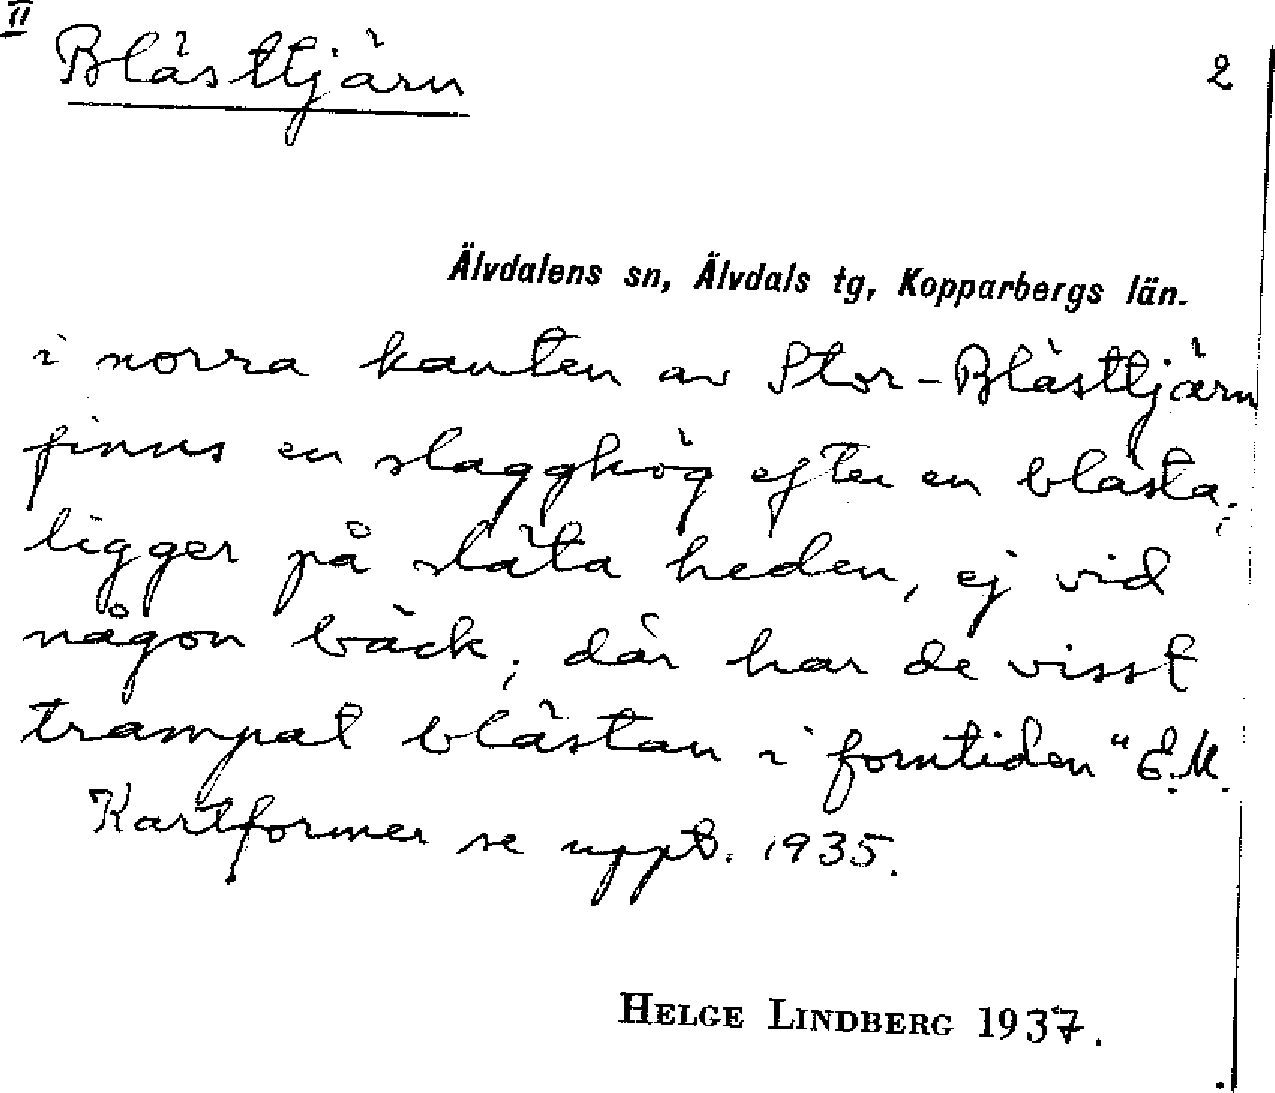 II
Blästtjärn
2
Älvdalens sn, Älvdals tg, Kopparbergs län.
i norra kanten av Stor-Blästtjärn
finns en slagghög efter en blästa;
ligger på släta heden, ej vid
någon bäck; där har de visst
trampat blästan i forntiden" E.M.
Kartformer se uppt. 1935.
HELGE LINDBERG 1937.